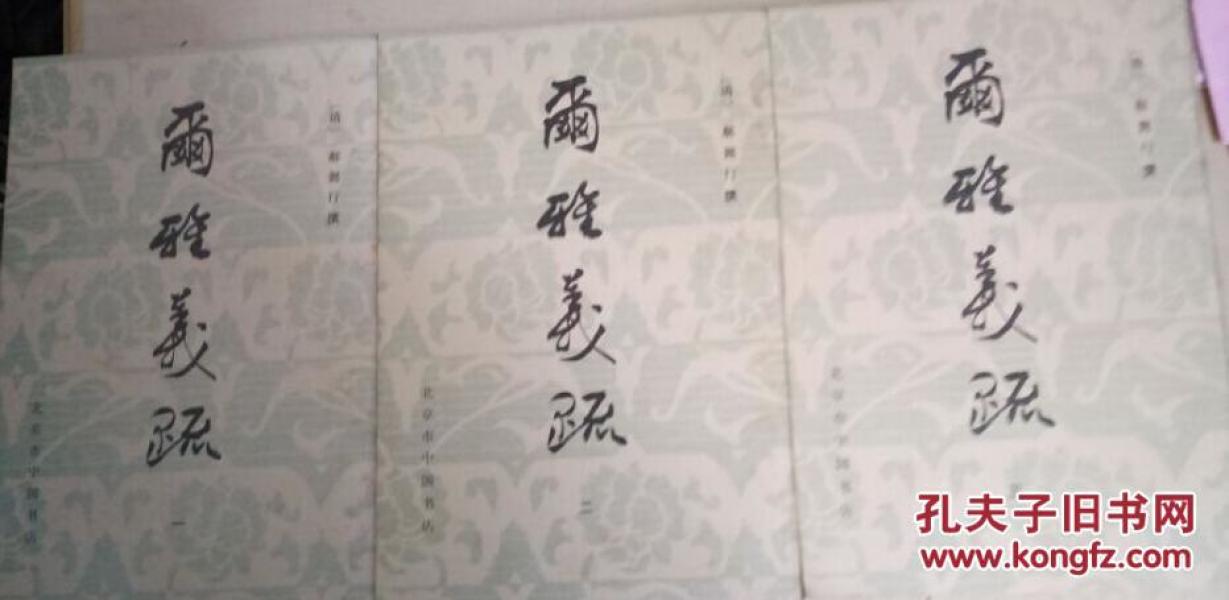 爾雅義疏
〔清〕郝懿行撰
北京市中国书店
一
爾雅義疏
〔清〕郝懿行撰
北京市中国书店
二
爾雅義疏
〔清〕郝懿行撰
北京市中国书店
孔夫子旧书网
www.kongfz.com